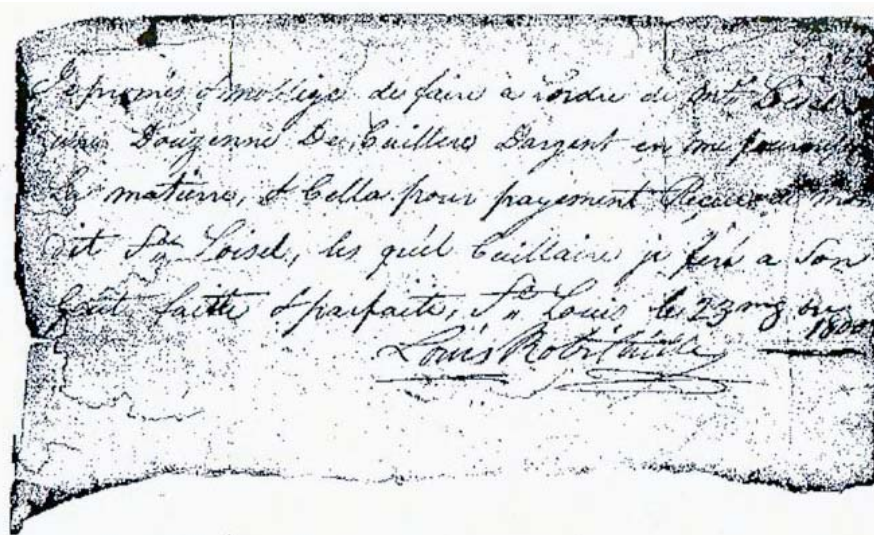 Je promés & m'obliges de faire a l'ordre de Mr Loisel
une Douzenne De Cuillere D'argent en me fournis
La matierre, & Cella pour payement Reçeue de mon
dit Sr Loisel, les quéel Cuillaire je feré a Son
Gout faitte & parfaite, St Louis le 23
1800
Louis Robitaille